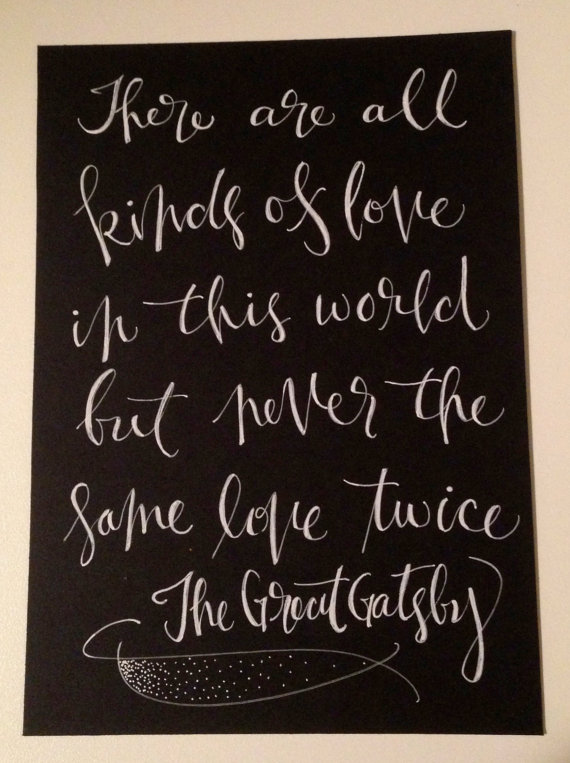 There are all
kinds of love
in this world
but never the
same love twice
The Great Gatsby